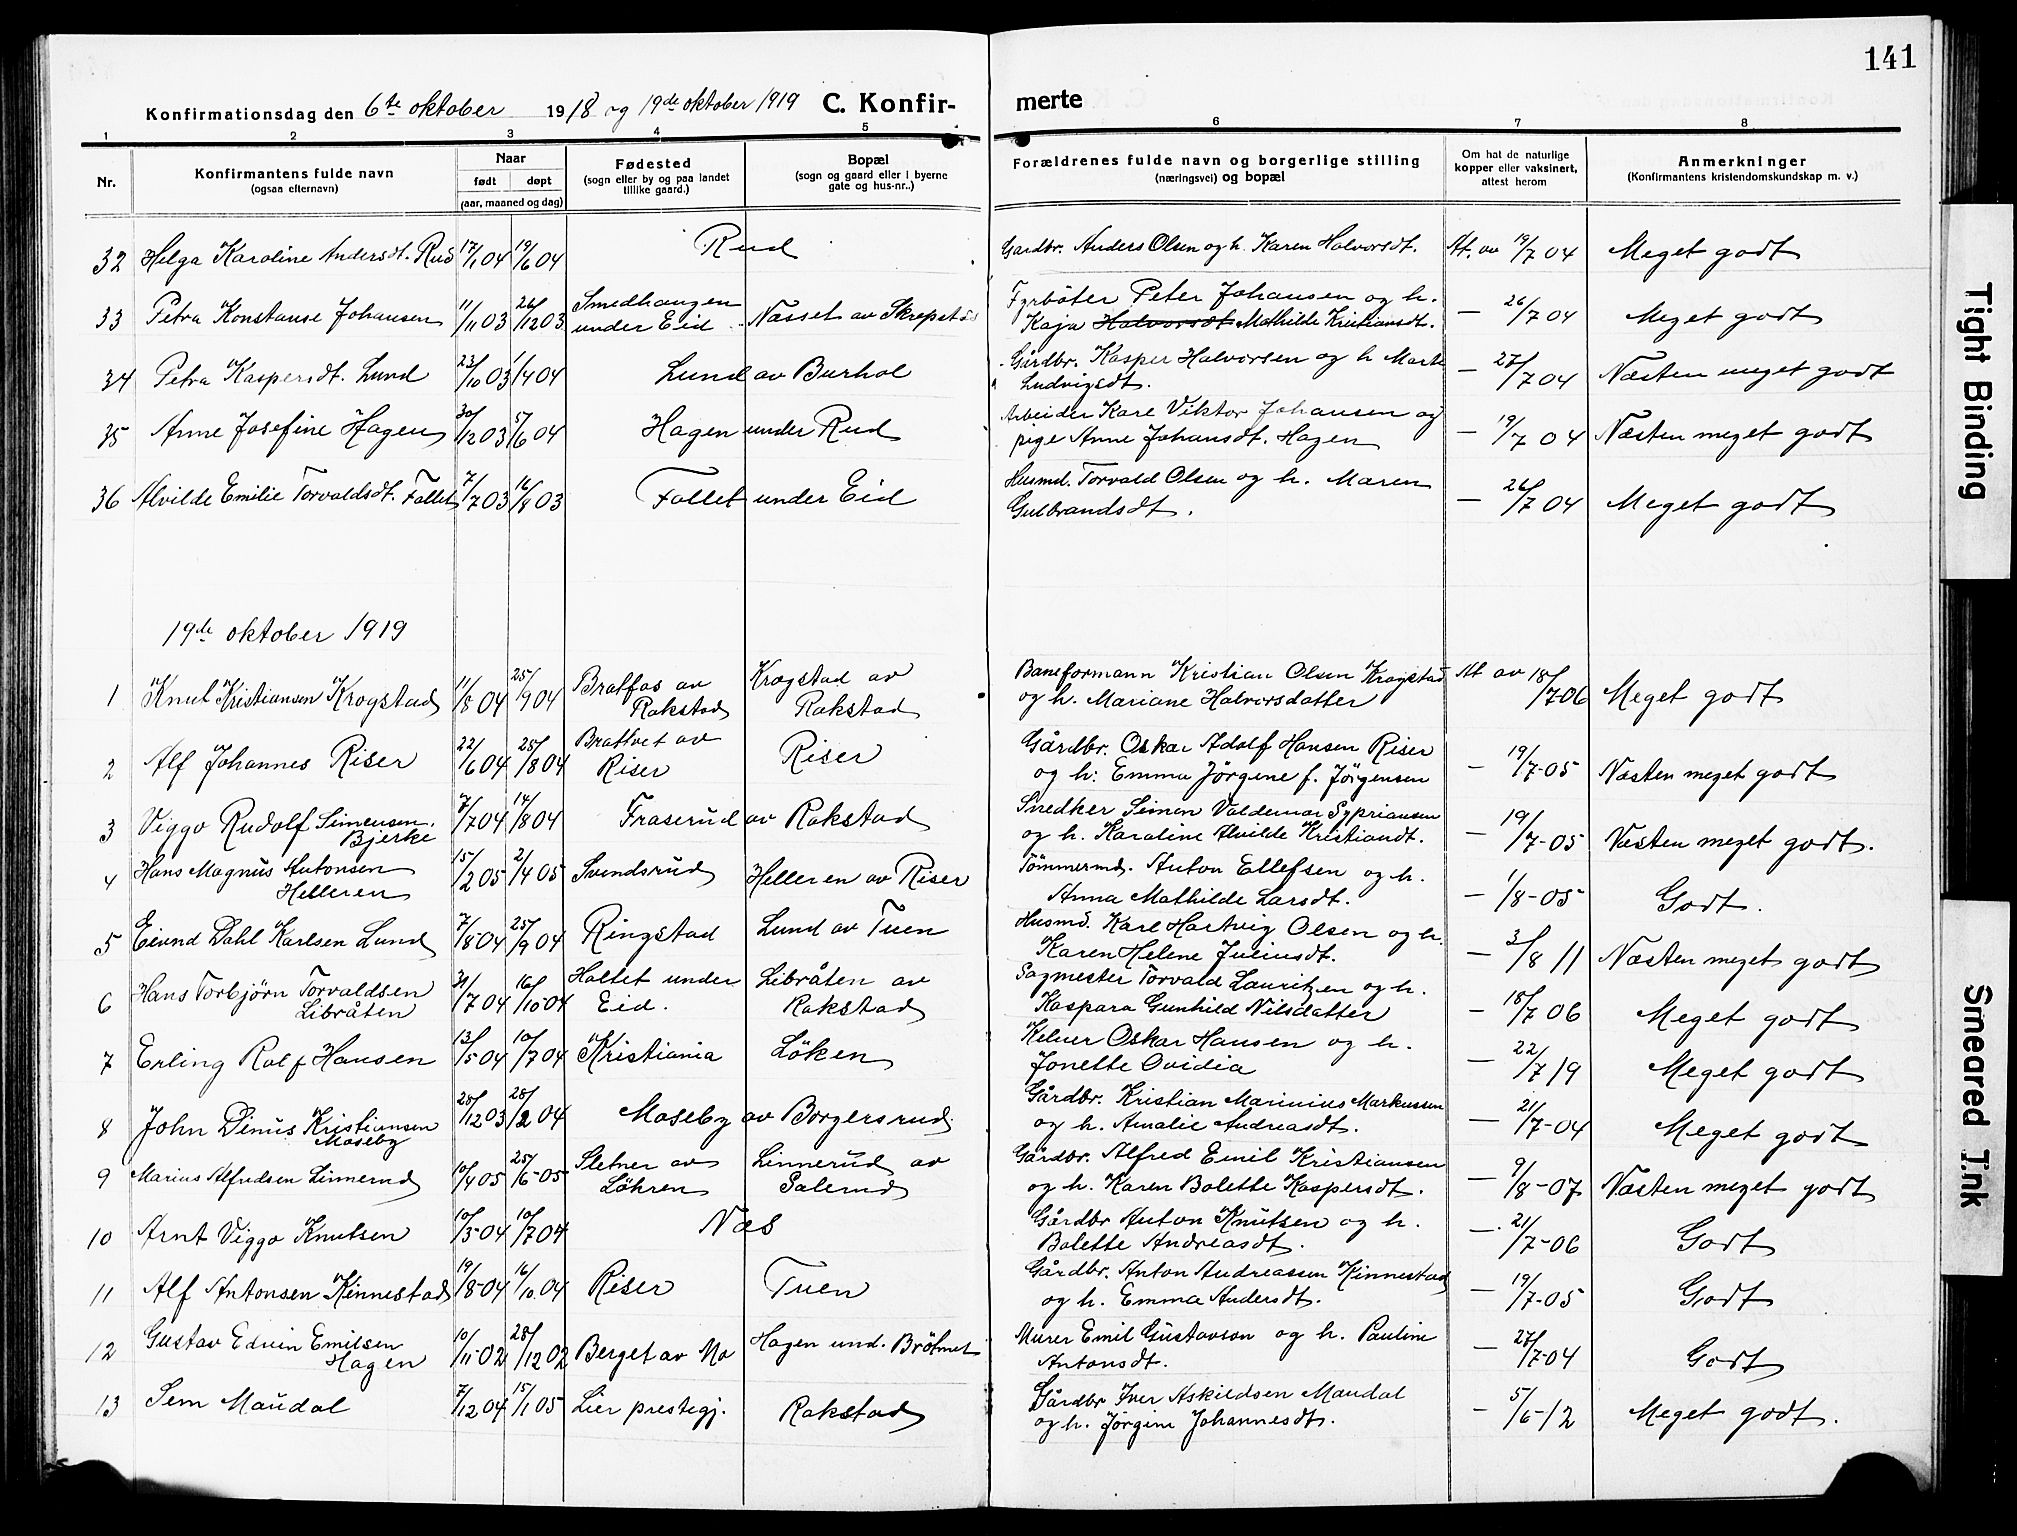 141
Konfirmationsdag den 6te oktober 1918 og 19de oktober 1919 C. Konfir- merte
1 2 3 4 5 6 7 8
Nr.
Konfirmantens fulde navn
(ogsaa efternavn)
Naar
født døpt
(aar, maaned og dag)
Fødested
(sogn eller by og paa landet
tillike gaard.)
Bopæl
(sogn og gaard eller i byerne
gate og hus-nr..)
Forældrenes fulde navn og borgerlige stilling
(næringsvei) og bopæl
Om hat de naturlige
kopper eller vaksinert,
attest herom
Anmerkninger
(Konfirmantens kristendomskundskap m. v.)
32 Helga Karoline Andersdt. Rud 17/1 04 19/6 04 Rud Gardbr. Anders Olsen og h. Karen Halvorsdt. At. av 19/7 04 Meget godt
33 Petra Konstanse Johansen 11/11 03 26/12 03 Smedhaugen under Eid Næsset av Skrepstad Fyrbøter Peter Johansen og h.
Kaja Halvorsdt Mathilde Kristiansdt. — 26/7 04 Meget godt
34 Petra Kaspersdt. Lund 23/10 03 1/4 04 Lund av Burhol Gårdbr. Kasper Halvorsen og h Marte
Ludvigsdt. — 27/7 04 Næsten meget godt
35 Anne Josefine Hagen 30/12 03 5/6 04 Hagen under Rud Arbeider Kare Viktor Johansen og
pige Anne Johansdt. Hagen — 19/7 04 Næsten meget godt
36 Alvilde Emilie Torvaldsdt. Fallet 7/7 03 16/8 03 Fallet under Eid Husmd. Torvald Olsen og h. Maren
Gulbrandsdt. — 26/7 04 Meget godt
19de oktober 1919
1 Knut Kristiansen Krogstad 11/8 04 25/9 04 Bratfos av Rakstad Krogstad av Rakstad Baneformann Kristian Olsen Krogstad
og h. Mariane Halvorsdatter At av 18/7 06 Meget godt
2 Alf Johannes Riser 22/6 04 28/8 04 Brattvet av Riser Riser Gårdbr. Oskar Adolf Hansen Riser
og h. Emma Jörgene f. Jörgensen — 19/7-05 Næsten meget godt
3 Viggo Rudolf Simensen Bjerke 7/7 04 14/8 04 Fraserud av Rakstad Snedker Simon Valdemar Sypriansen
og h. Karoline Alvilde Kristiandt. — 19/7-05 Næsten meget godt.
4 Hans Magnus Antonsen Helleren 15/2 05 2/4 05 Svendsrud Helleren av Riser Tömmermd. Anton Ellefsen og h.
Anna Mathilde Larsdt. — 1/8-05 Godt.
5 Eivnd Dahl Karlsen Lund 7/8-04 25/9 04 Ringstad Lund av Tuen Husmd. Karl Hartvig Olsen og h.
Karen Helene Juliusdt. — 3/8 11 Næsten meget godt
6 Hans Torbjörn Torvaldsen Libråten 30/7 04 16/10-04 Holtet under Eid. Libråten av Rakstad Sagmester Torvald Lauritzen og h.
Kaspara Gunhild Nilsdatter — 18/7 06 Meget godt
7 Erling Rolf Hansen 13/5 04 10/7 04 Kristiania Löken Kelner Oskar Hansen og h.
Jonette Ovidia — 22/7 19 Meget godt
8 John Dinus Kristiansen Moseby 28/12 03 28/2 04 Moseby av Borgersrud Gårdbr. Kristian Marinius Markussen
og h. Amalie Andreasdt. — 21/7-04 Meget godt
9 Marius Alfredsen Linnerud 10/4 05 25/6-05 Sletner av Löhren Linnerud av Salerud Gårdbr. Alfred Emil Kristiansen
og h. Karen Bolette Kaspersdt. — 9/8-07 Næsten meget godt
10 Arnt Viggo Knutsen 10/5-04 10/7 04 Næs Gårdbr Anton Knutsen og h.
Bolette Andreasdt. — 21/7-06 Godt
11 Alf Antonsen Kinnestad 19/8-04 16/10.04 Riser Tuen Gårdbr. Anton Andreassen Kinnestad
og h. Emma Andersdt. — 19/7-05 Godt
12 Gustav Edvin Emilsen Hagen 10/11-02 28/12 02 Berget av Mo Hagen und. Brötmet Murer Emil Gustavson og h. Pauline
Antonsdt. — 27/7-04 Godt
13 Sem Maudal 7/12 04 15/1 05 Lier prestegj. Rakstad Gårdbr Iver Askildsen Maudal
og h. Jørgine Johannesdt. — 5/6-12 Meget godt.
Tight Binding
Smeared Ink